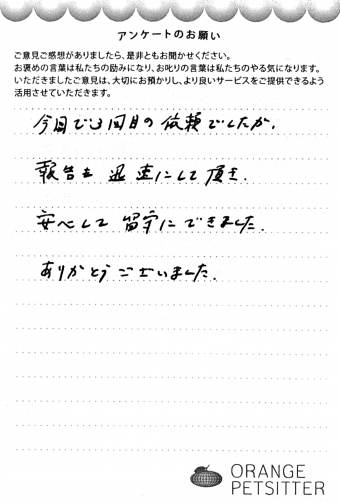 アンケートのお願い
ご意見ご感想がありましたら、是非ともお聞かせください。
お褒めの言葉は私たちの励みになり、お叱りの言葉は私たちのやる気になります。
いただきましたご意見は、大切にお預かりし、より良いサービスをご提供できるよう
活用させていただきます。
今回で3回目の依頼でしたが、
報告を迅速にして頂き、
安心して留守にできました。
ありがとうございました。
ORANGE
PETSITTER